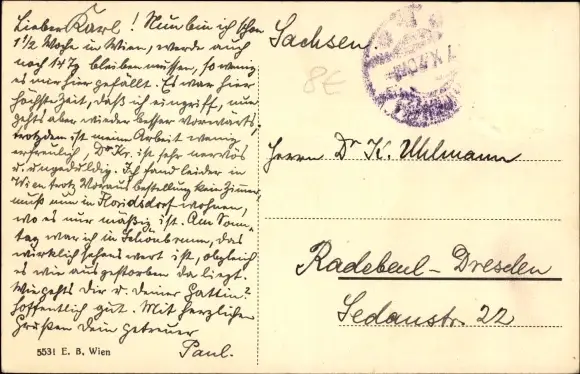 Lieber Karl! Nun bin ich schon
1 1/2 Woche in Wien, werde auch
noch 14 Tg bleiben müssen, so wenig
es mir hier gefällt. Es war hier
höchste Zeit, daß ich eingriff, nun
gehts aber wieder besser vorwärts,
trotzdem ist meine Arbeit wenig
erfreulich, Dr Kr. ist sehr nervös
u. ungeduldig. Ich fand leider in
Wien trotz Vorausbestellung kein Zimmer,
muß nun in Floridsdorf wohnen,
wo es nur mäßig ist. Am Sonn-
tag war ich in Schönbrunn, das
wirklich sehenswert ist, obgleich
es wie ausgestorben da liegt.
Wie gehts Dir u. deiner Gattin?
Hoffentlich gut. Mit herzlichen
Grüßen Dein getreuer
Paul.
5531 E. B. Wien
Sachsen.
8E
Herrn Dr K. Uhlmann
Radebeul-Dresden
Sedanstr. 22